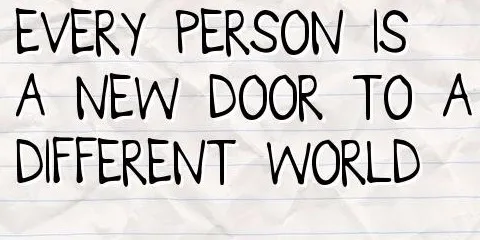 EVERY PERSON IS
A NEW DOOR TO A
DIFFERENT WORLD